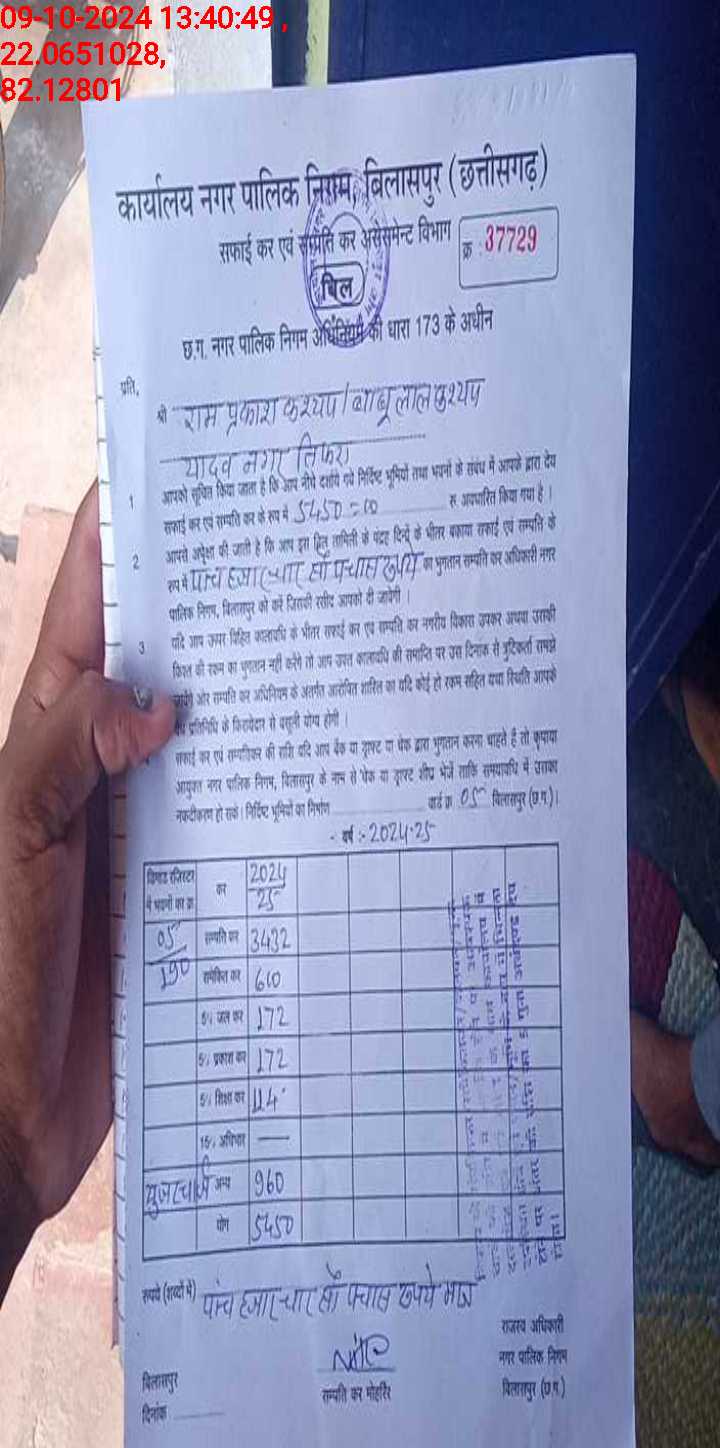 09-10-2024 13:40:49 ,
22.0651028,
82.12801
कार्यालय नगर पालिक निगम, बिलासपुर (छत्तीसगढ़)
सफाई कर एवं सम्पति कर असेसमेन्ट विभाग
क्र. 37729
बिल
छ.ग. नगर पालिक निगम अधिनियम की धारा 173 के अधीन
प्रति,
श्री राम प्रकाश कश्यप / बाबूलाल कश्यप
यादव नगर तिफरा
1 आपको सूचित किया जाता है कि आप नीचे दर्शाये गये निर्दिष्ट भूमियों तथा भवनों के संबंध में आपके द्वारा देय
सफाई कर एवं सम्पति कर के रूप में 5450=00 रु. अवधारित किया गया है।
2 आपसे अपेक्षा की जाती है कि आप इस बिल तामिली के पंद्रह दिनों के भीतर बकाया सफाई एवं सम्पति के
रूप में पांच हजार चार सौ पचास रूपये का भुगतान सम्पति कर अधिकारी नगर
पालिक निगम, बिलासपुर को करें जिसकी रसीद आपको दी जावेगी।
3 यदि आप ऊपर विहित कालावधि के भीतर सफाई कर एवं सम्पति कर नगरीय विकास उपकर अथवा उसकी
किश्त की रकम का भुगतान नहीं करेंगे तो आप उक्त कालावधि की समाप्ति पर उस दिनांक से त्रुटिकर्ता समझे
जायेंगे और सम्पति कर अधिनियम के अंतर्गत आरोपित शास्ति का यदि कोई हो रकम सहित यथा स्थिति आपके
प्रतिनिधि के किरायेदार से वसूली योग्य होगी।
सफाई कर एवं सम्पतिकर की राशि यदि आप बैंक या ड्राफ्ट या चेक द्वारा भुगतान करना चाहते हैं तो कृपया
आयुक्त नगर पालिक निगम, बिलासपुर के नाम से चेक या ड्राफ्ट शीघ्र भेजें ताकि समयावधि में उसका
नकदीकरण हो सके। निर्दिष्ट भूमियों का निर्माण वार्ड क्र. 05 बिलासपुर (छ.ग.)।
- वर्ष :- 2024-25
डिमांड रजिस्टर में भवनों का क्र. कर 2024/25
05/190 सम्पति कर 3432
समेकित कर 600
5% जल कर 172
5% प्रकाश कर 172
5% शिक्षा कर 114
15% अधिभार —
यूजर चार्ज अन्य 960
योग 5450
रूपये (शब्दों में) पांच हजार चार सौ पचास रूपये मात्र
राजस्व अधिकारी
नगर पालिक निगम
बिलासपुर (छ.ग.)
सम्पति कर मोहर्रिर
बिलासपुर
दिनांक